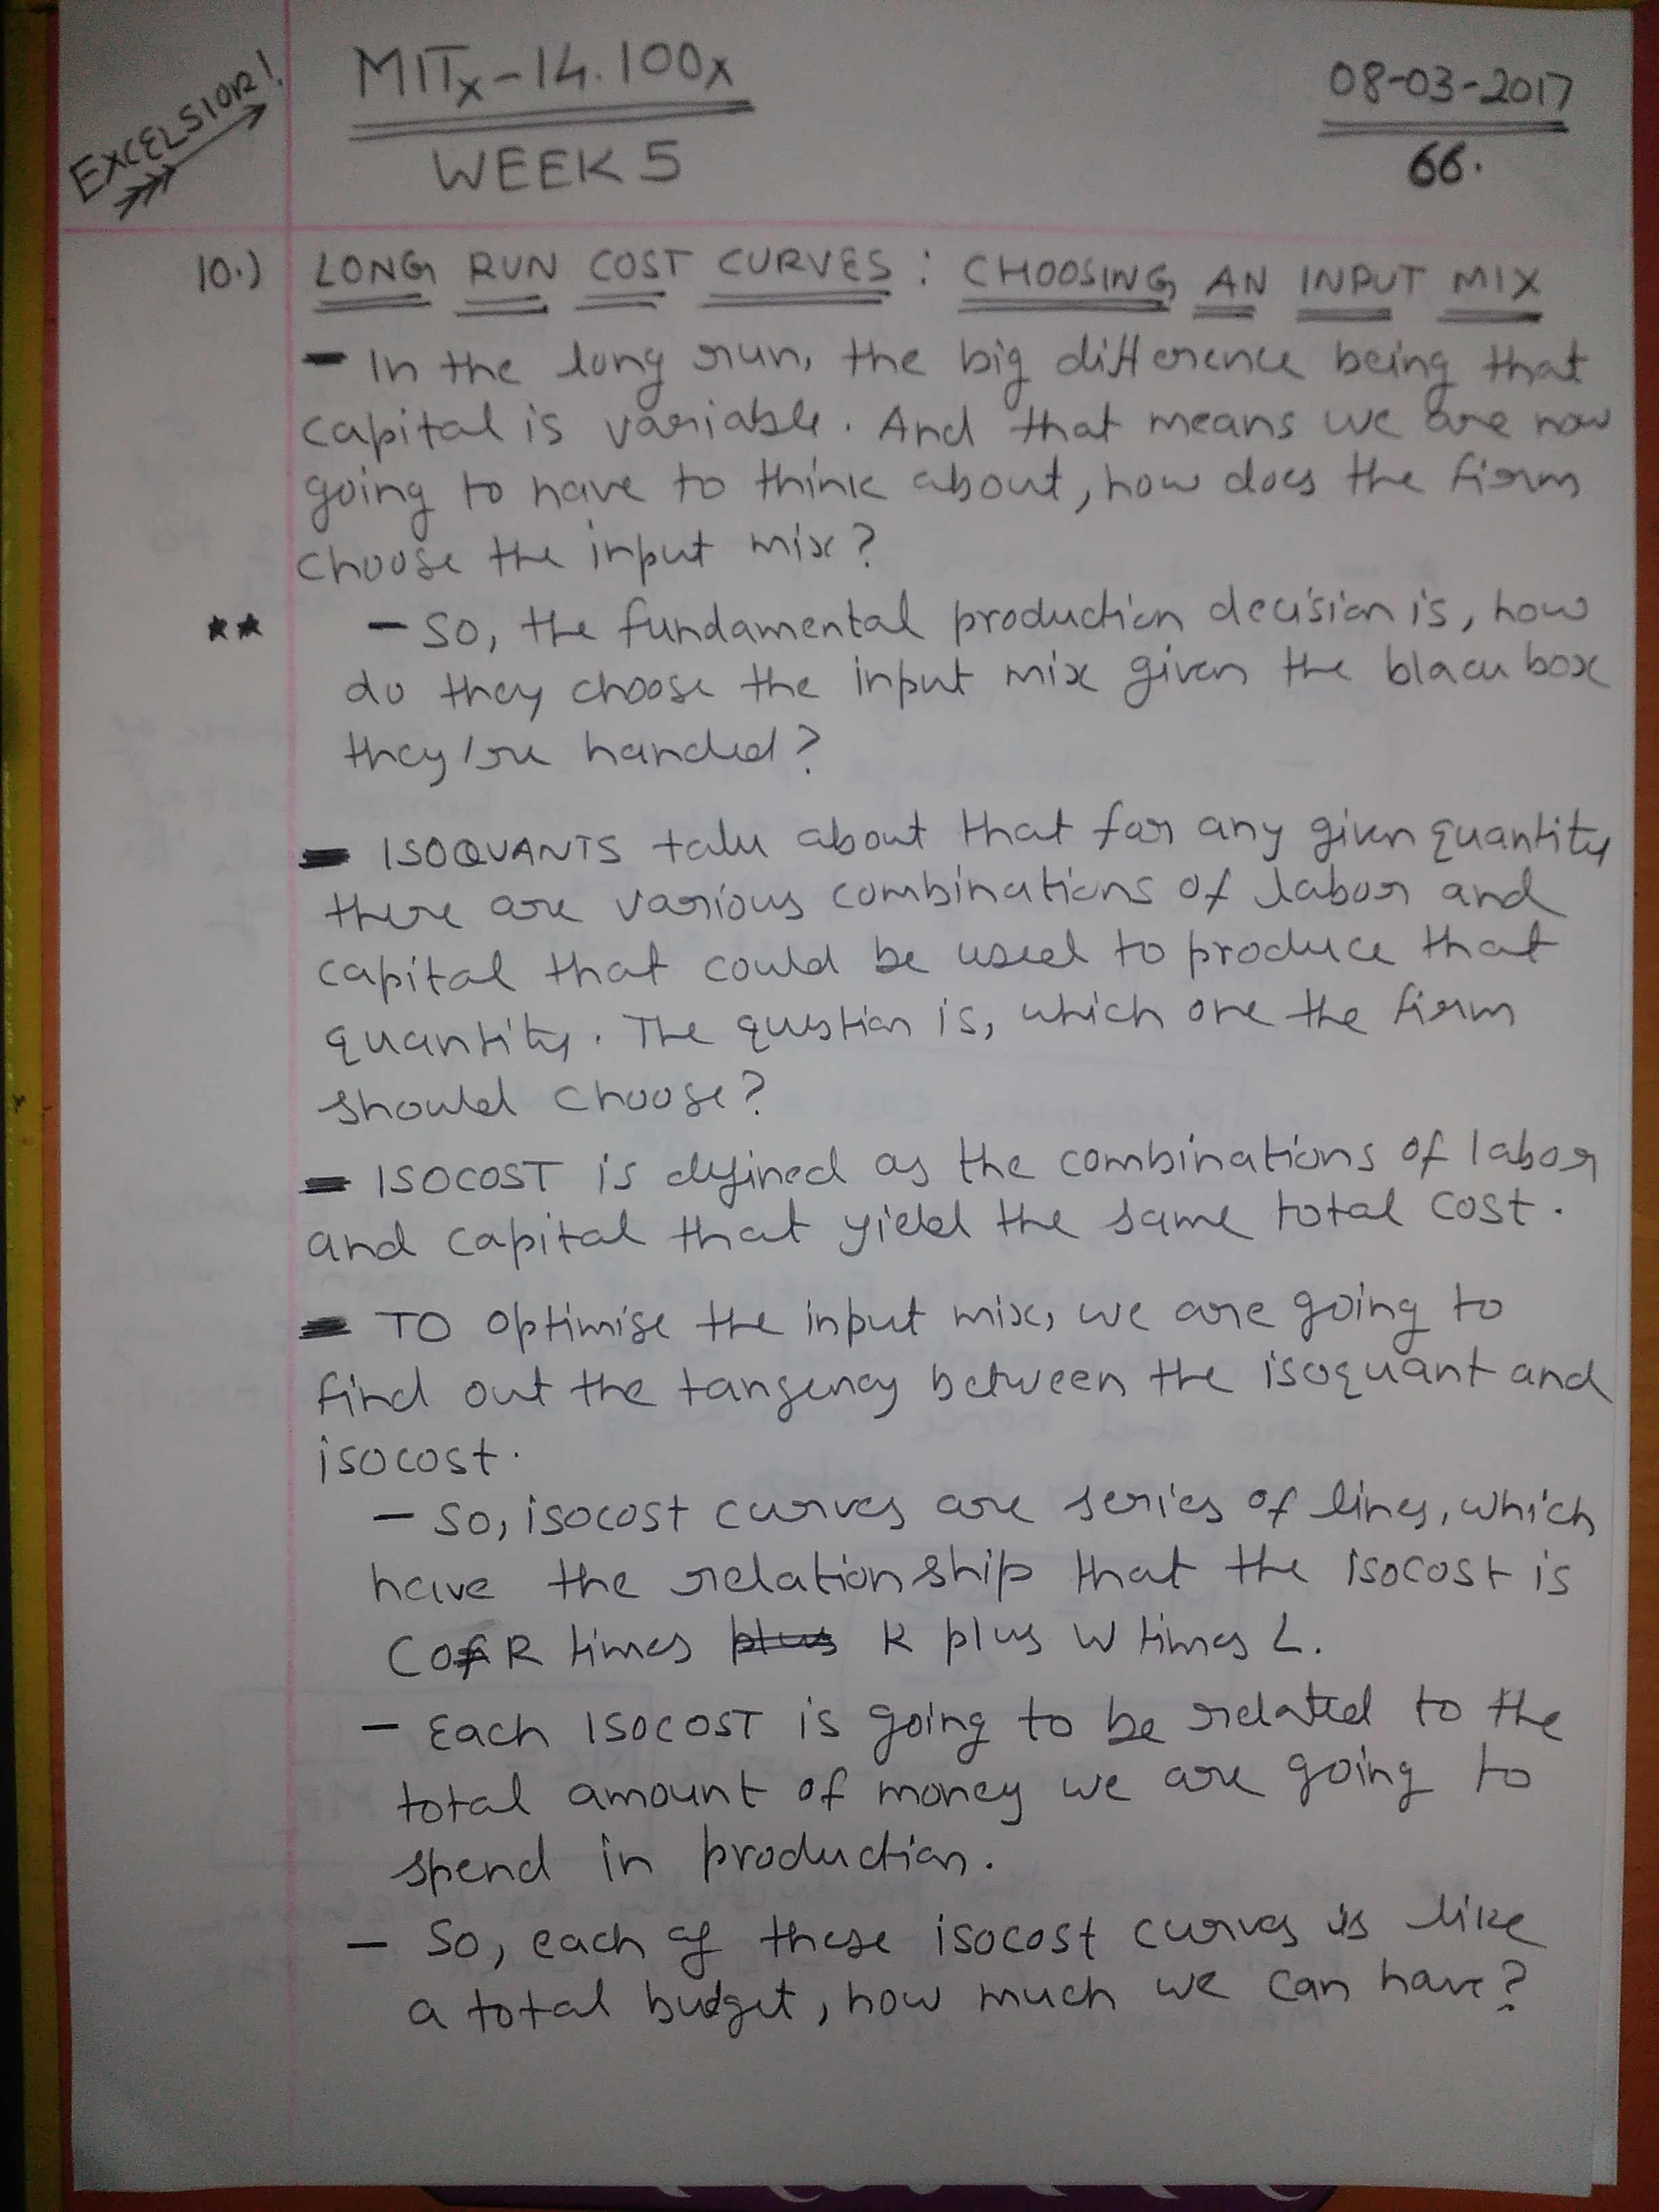 EXCELSIOR!
MITx-14.100x
08-03-2017
WEEK 5
66.
10.) LONG RUN COST CURVES : CHOOSING AN INPUT MIX
- In the long run, the big difference being that
capital is variable. And that means we are now
going to have to think about, how does the firm
choose the input mix?
** - So, the fundamental production decision is, how
do they choose the input mix given the black box
they're handed?
- ISOQUANTS talk about that for any given quantity
there are various combinations of labor and
capital that could be used to produce that
quantity. The question is, which one the firm
should choose?
- ISOCOST is defined as the combinations of labor
and capital that yield the same total cost.
- To optimise the input mix, we are going to
find out the tangency between the isoquant and
isocost.
- So, isocost curves are series of lines, which
have the relationship that the isocost is
R times plus K plus W times L.
- Each ISOCOST is going to be related to the
total amount of money we are going to
spend in production.
- So, each of these isocost curves is like
a total budget, how much we can have?